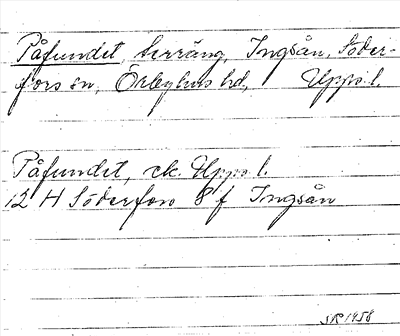 Påfundet, terräng, Ingsån, Söder-
fors sn, Örbyhus hd, Upps. l.
Påfundet, ek. Upps. l.
12 H Söderfors 8 f Ingsån
SR 1958